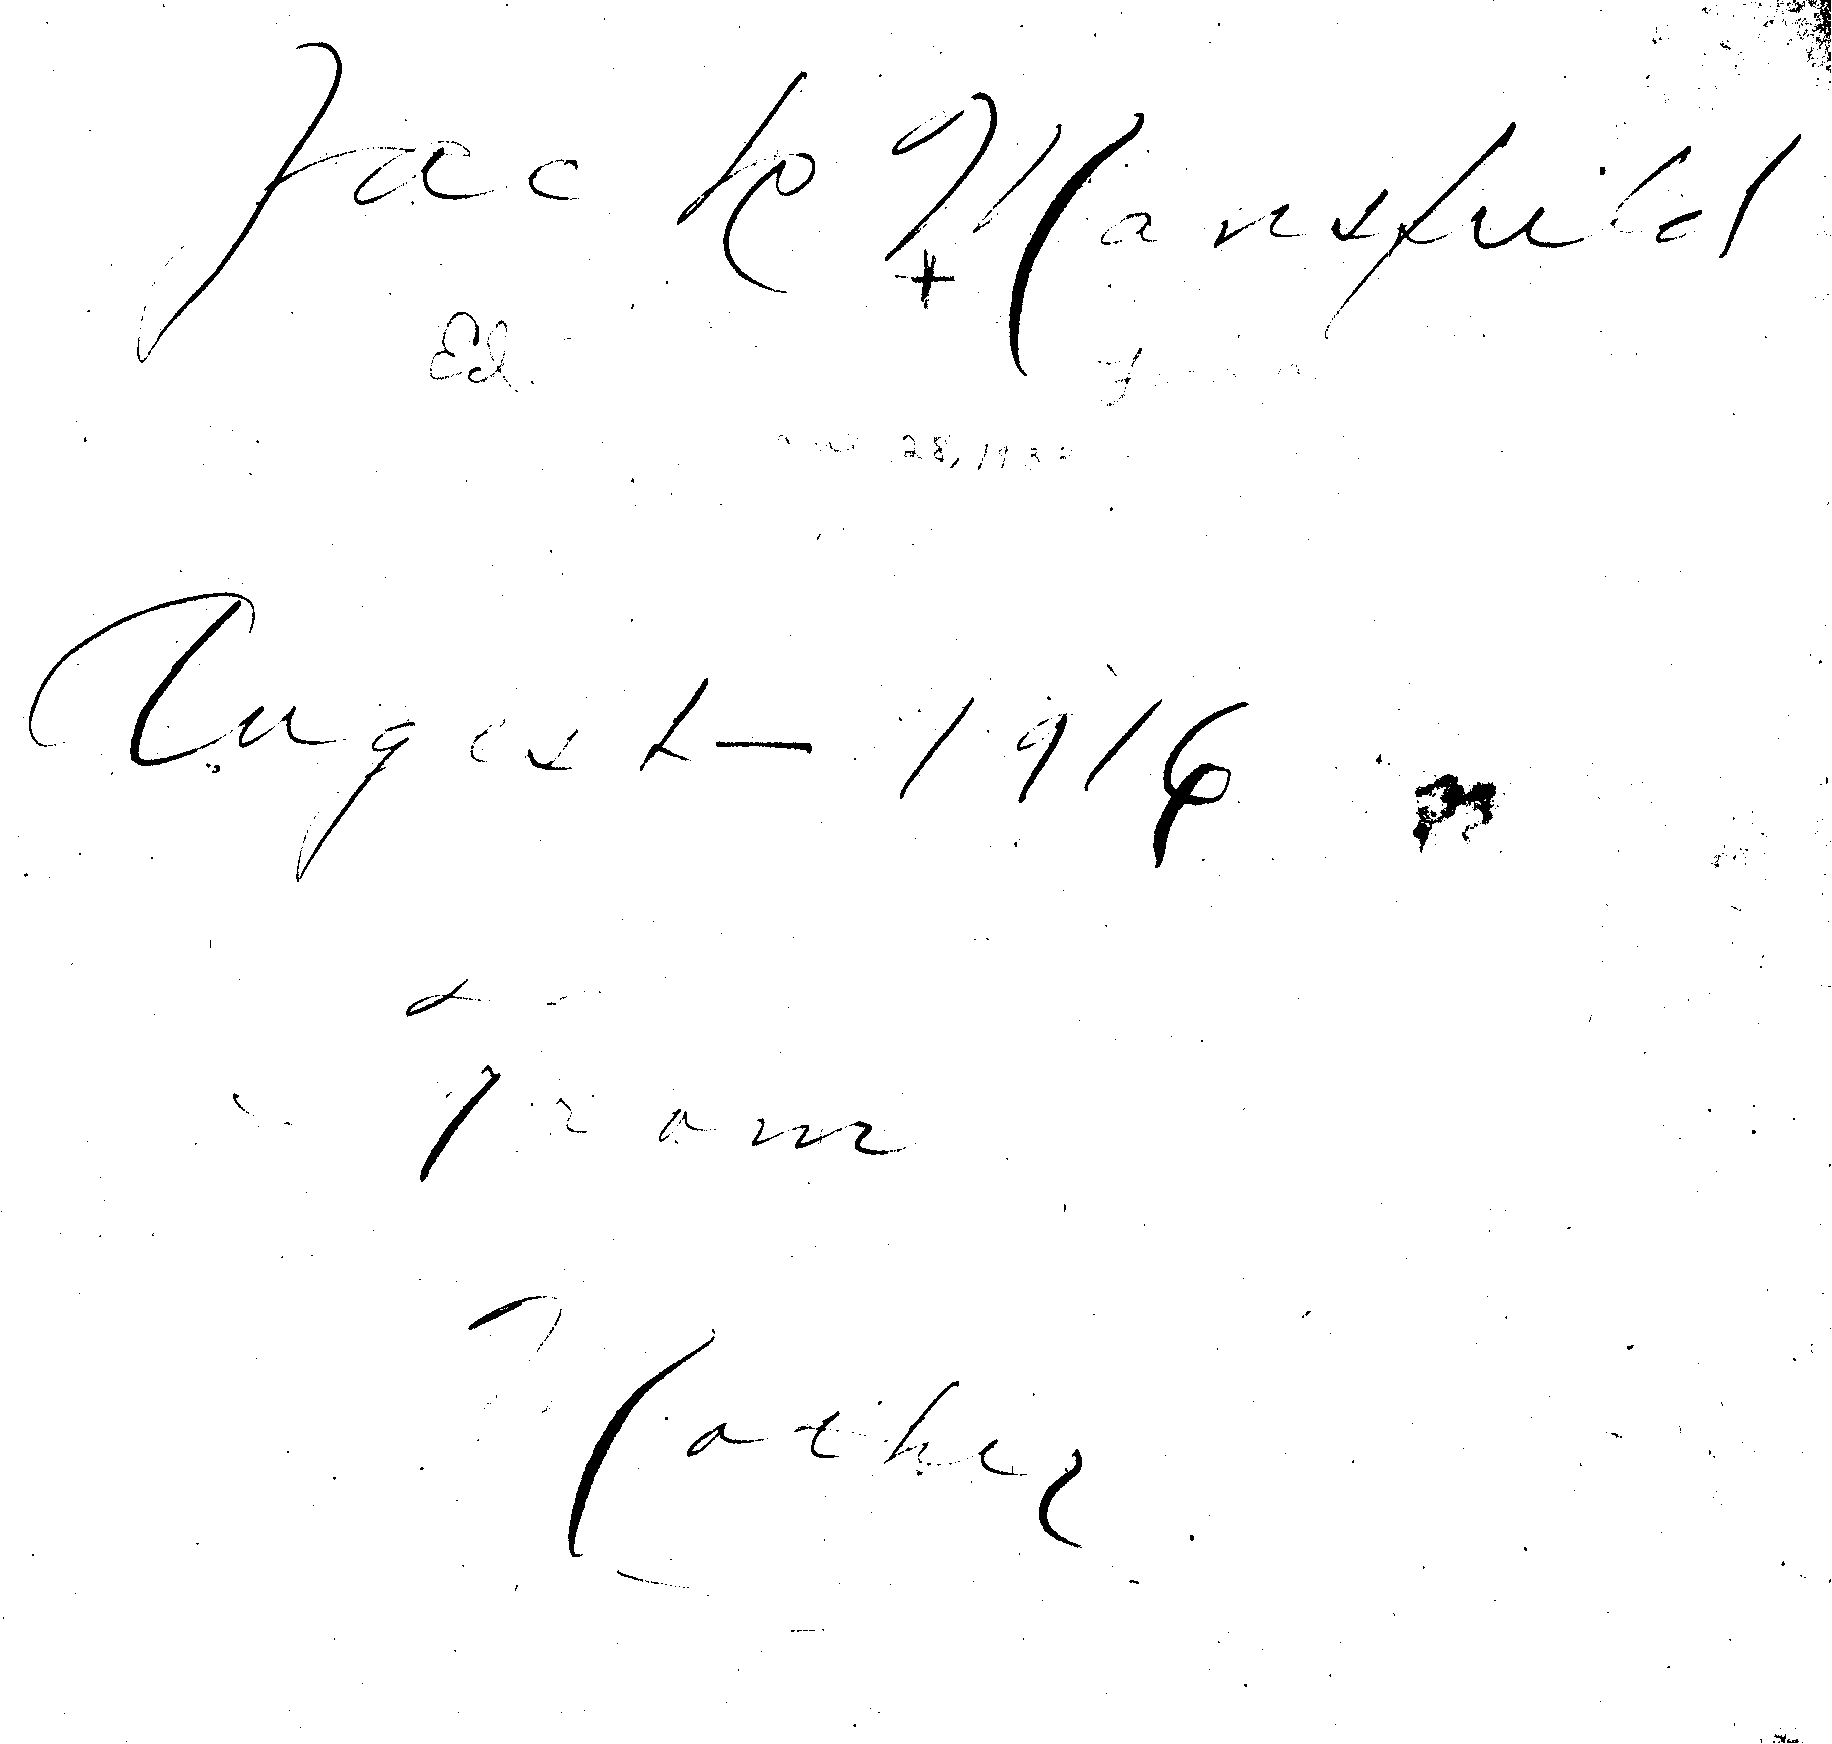 Jack Mansfield
+
Ed.
28, 193
August — 1916
From
Mother